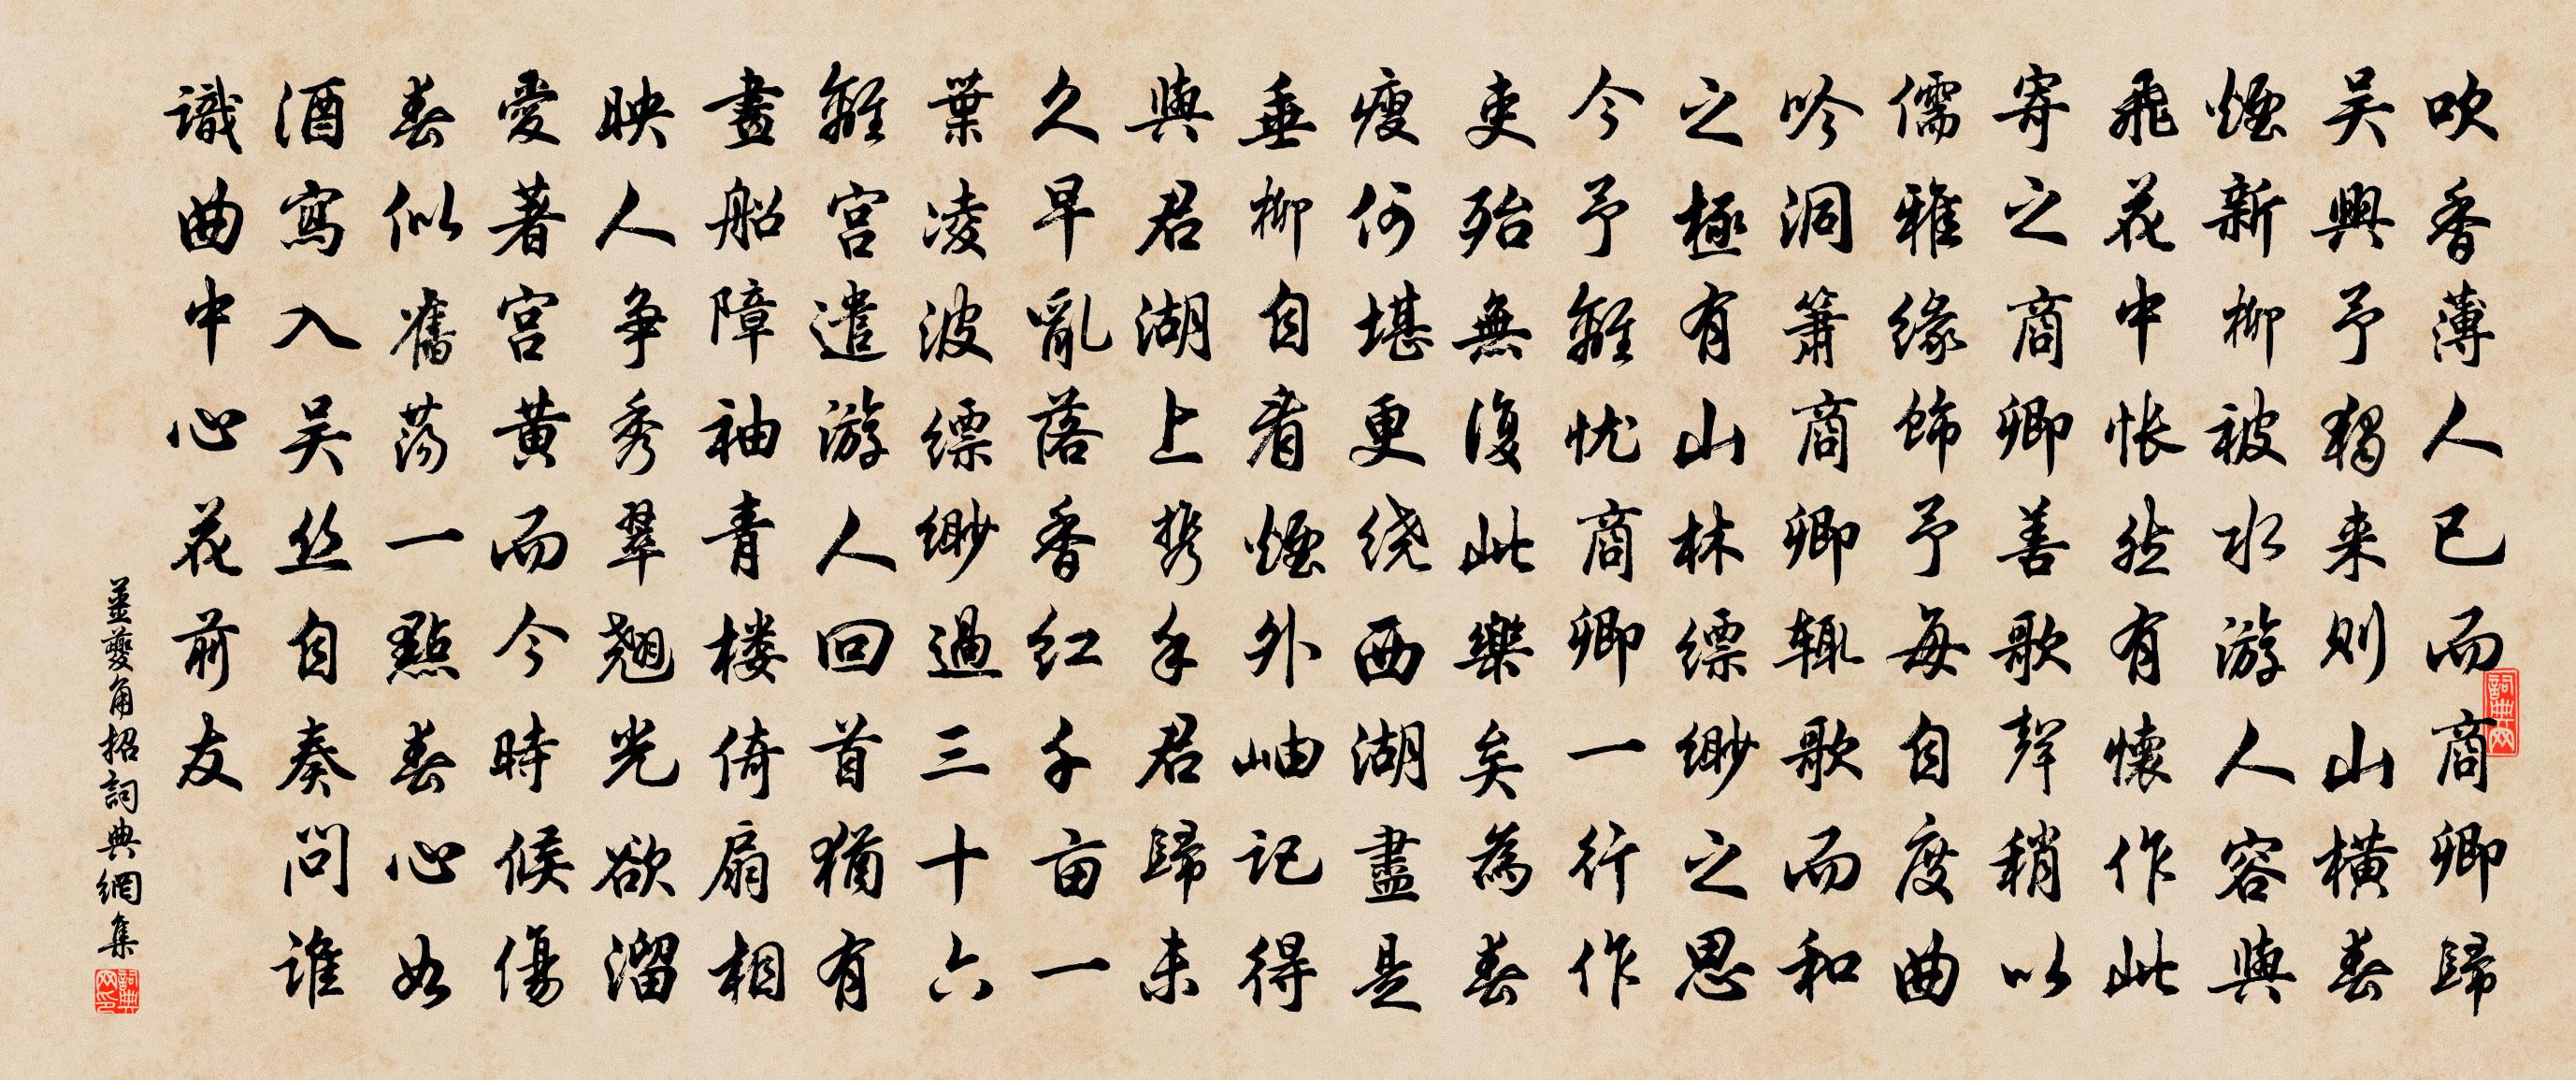 吹香薄人已而商卿歸
吴興予獨来則山橫春
煙新柳被水游人容與
飛花中悵然有懷作此
寄之商卿善歌聲稍以
儒雅緣飾予每自度曲
吟洞簫商卿輒歌而和
之極有山林缥緲之思
今予離忧商卿一行作
吏殆無復此樂矣為春
瘦何堪更绕西湖盡是
垂柳自看煙外岫記得
與君湖上携手君歸未
久早亂落香红千亩一
葉凌波缥緲過三十六
離宫遣游人回首猶有
畫船障袖青楼倚扇相
映人争秀翠翹光欲溜
愛著宫黄而今時候傷
春似舊蕩一點春心如
酒寫入吴丝自奏問谁
識曲中心花前友
姜夔角招詞典網集
詞典网
詞典网印